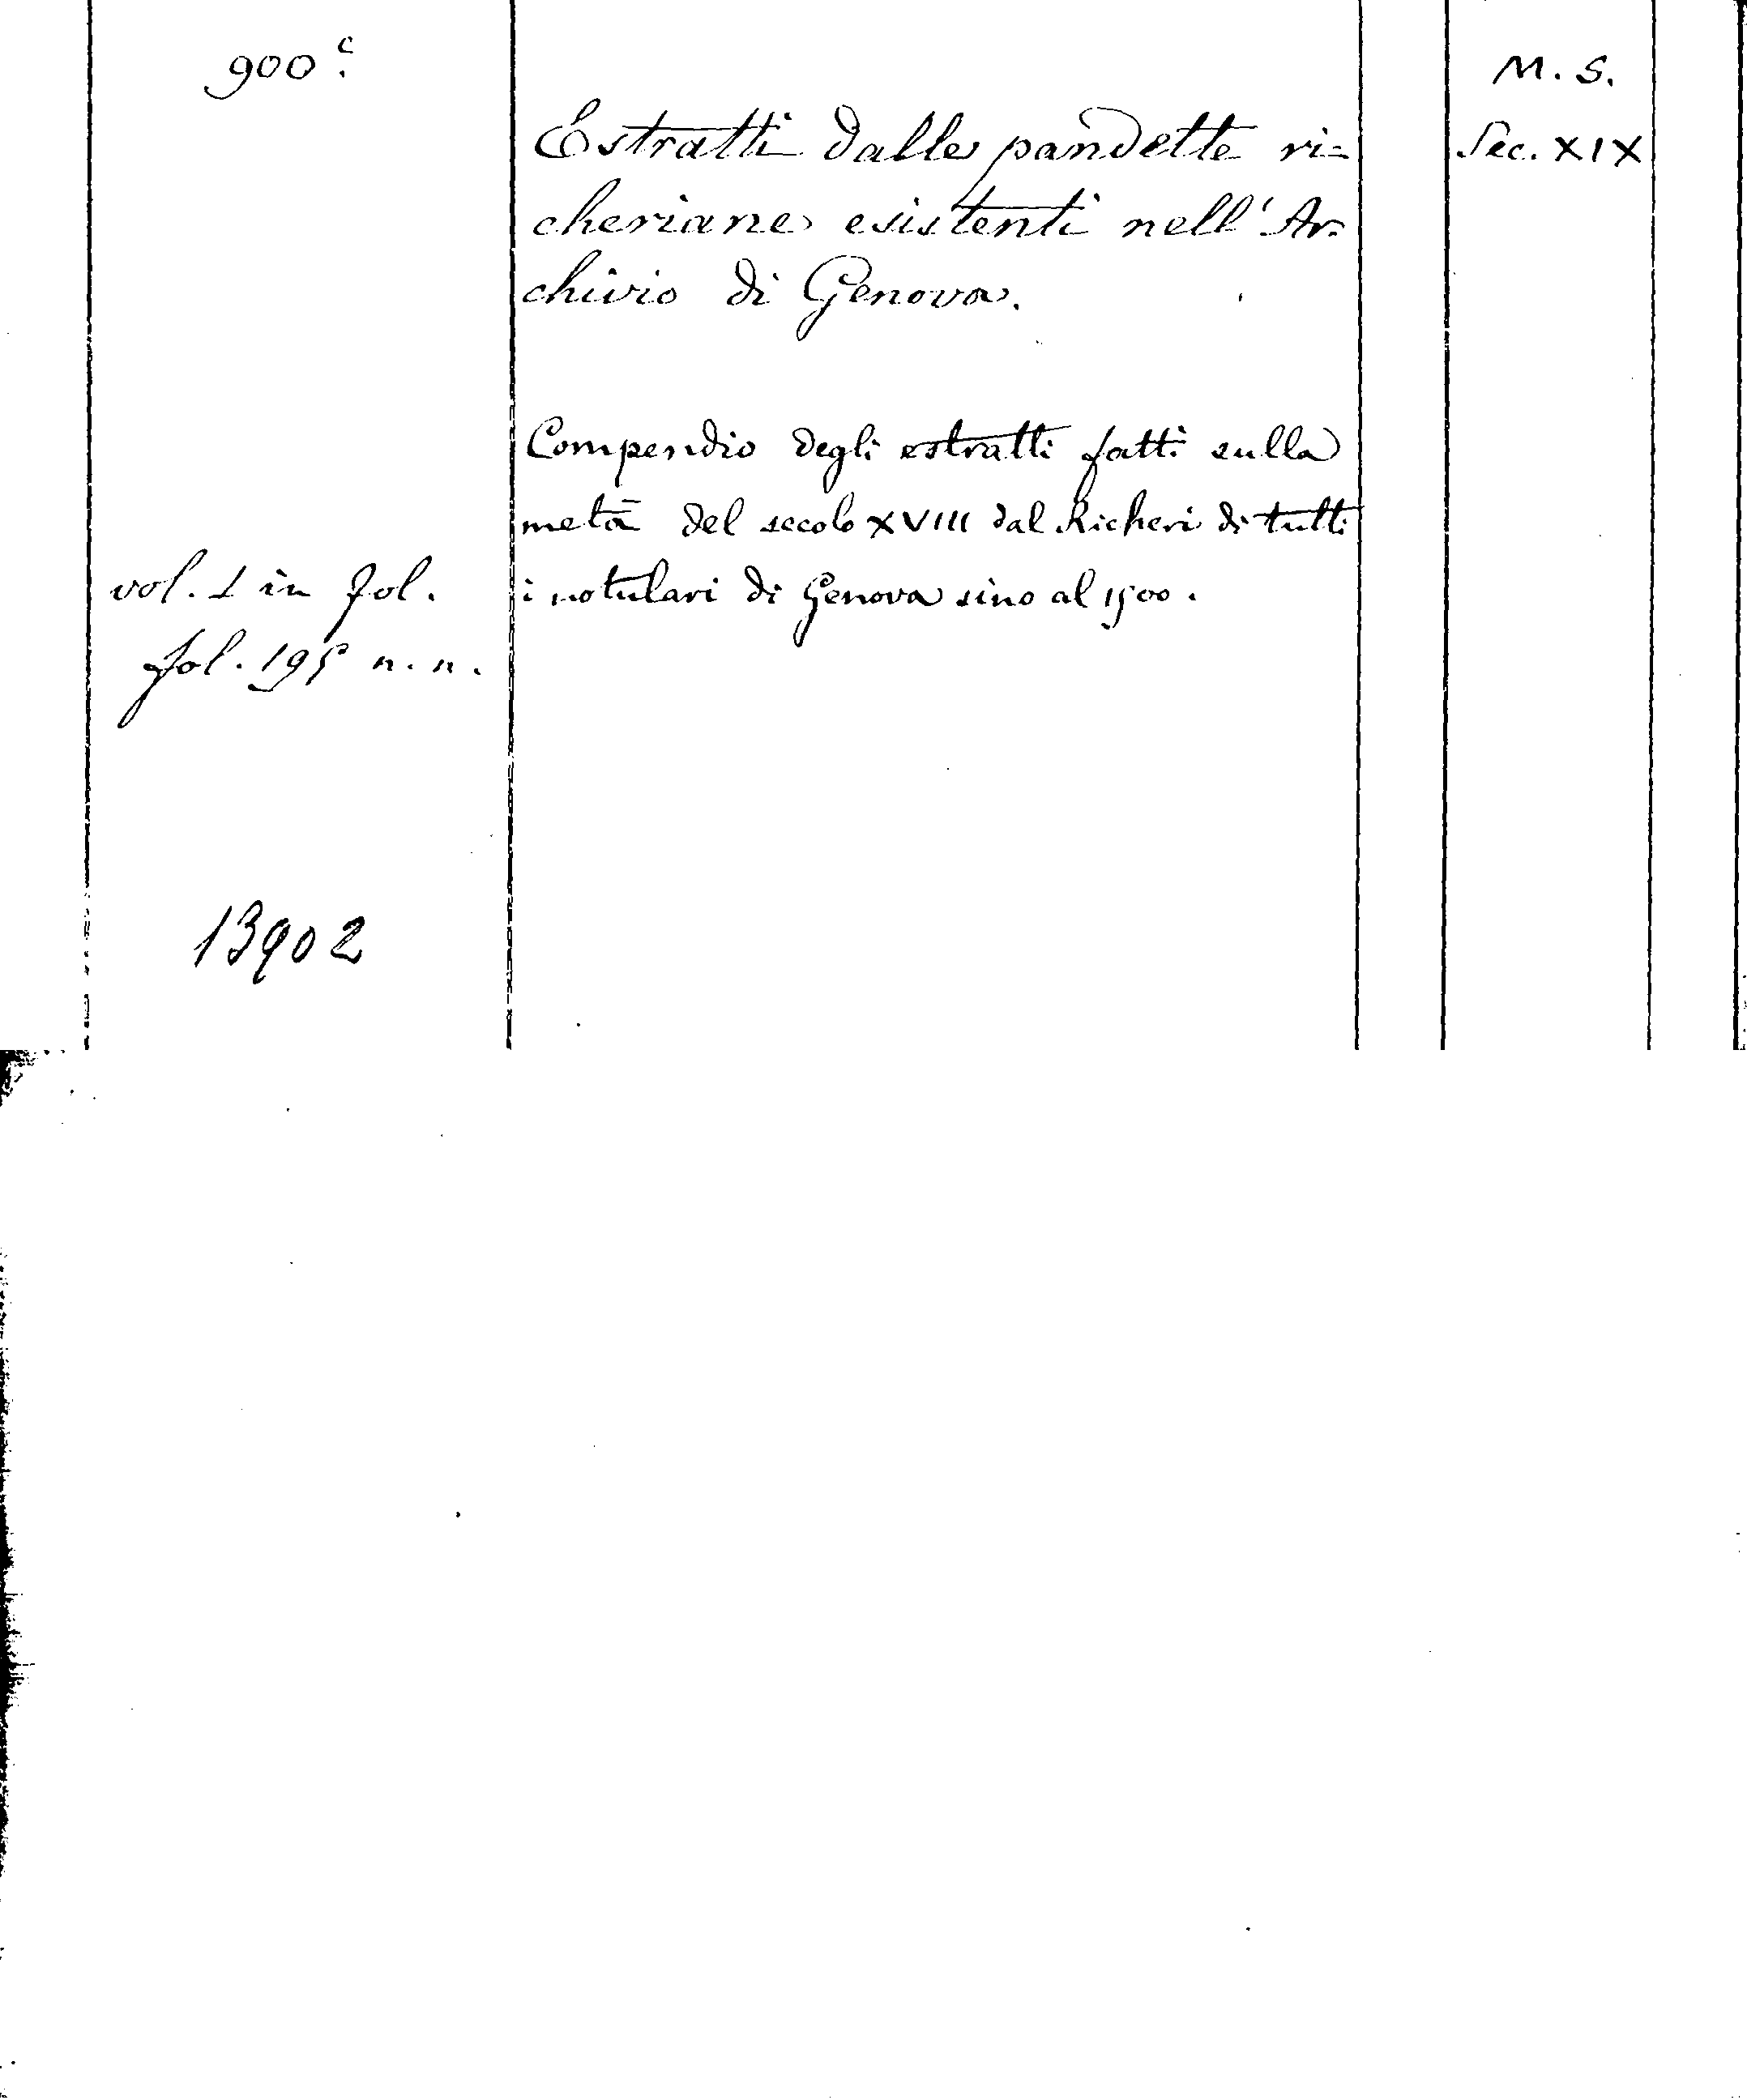 900.c
M. S.
Estratti dalle pandette ri=
Sec. XIX
cheriane esistenti nell' Ar=
chivio di Genova.
Compendio degli estratti fatti sulla
metà del secolo XVIII dal Richeri di tutti
vol. 1 in fol.
i notulari di Genova sino al 1500.
fol. 195 n. n.
13902